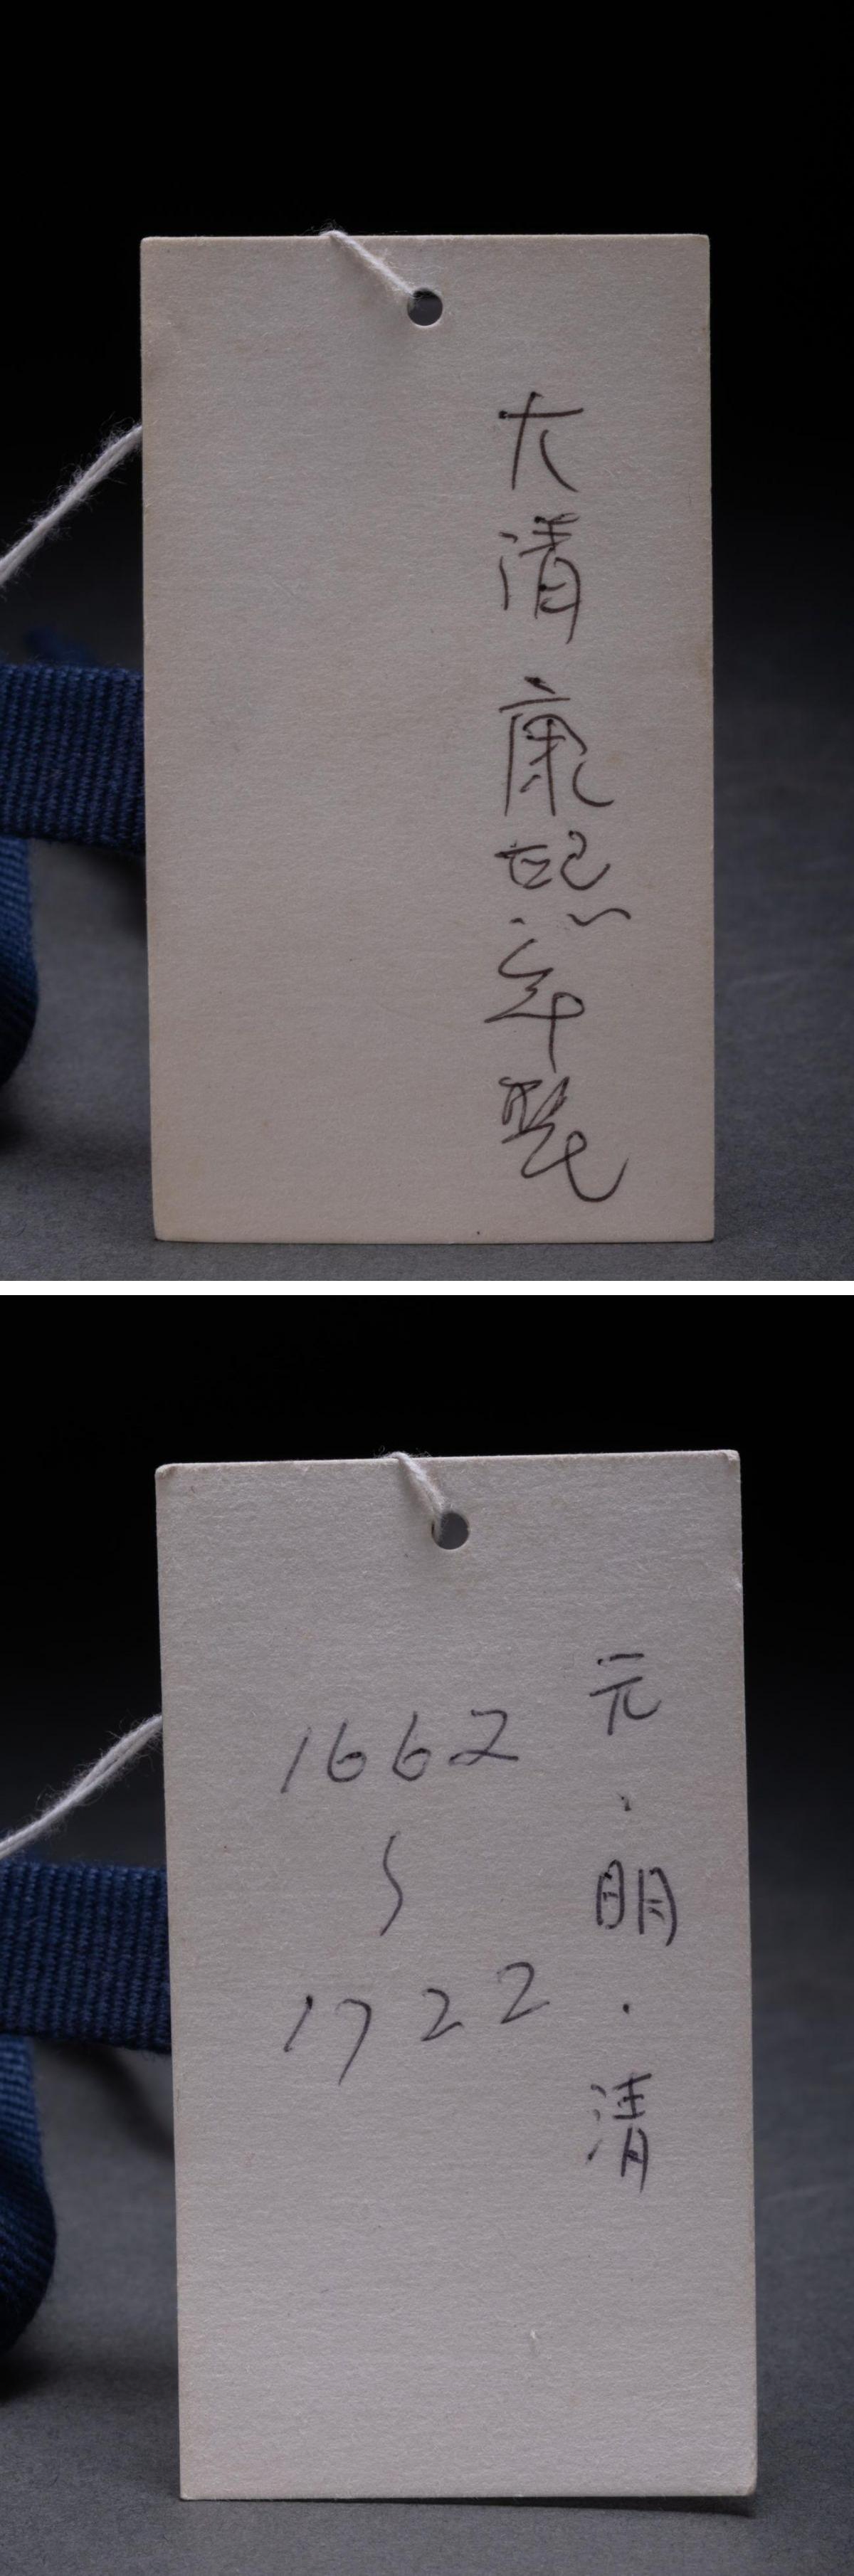 大清康熙年製
元・明・清
1662
〜
1722